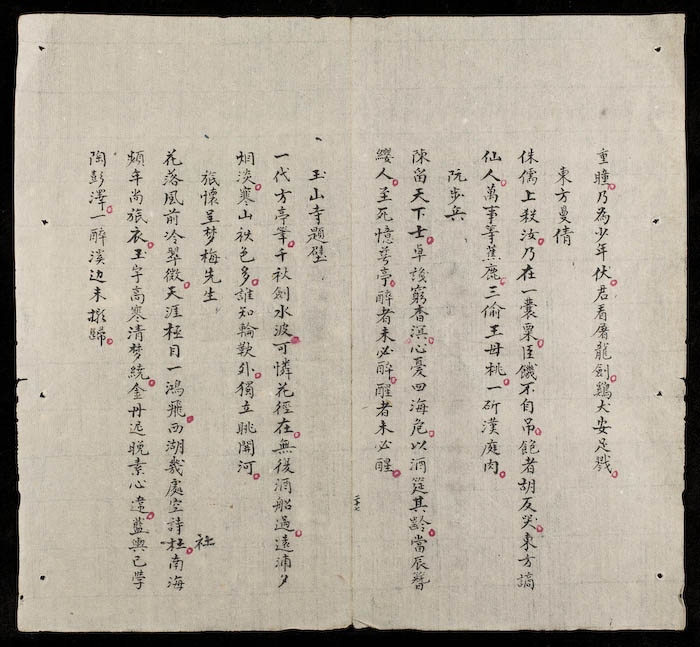 重瞳乃為少年伏君看屠龍劍鷄犬安足戮
東方曼倩
侏儒上秩汝乃在一囊粟臣饑不自吊飽者胡反哭東方謫
仙人萬事等蕉鹿三偷王母桃一斫漢庭肉
阮步兵
陳留天下士卓
心憂四海危以酒
其齡當辰
纓人至死憶
亭醉者未必醉醒者未必醒
二十七
玉山寺題壁
一代方亭筆千秋劍水波可憐花徑在無復酒船過遠浦夕
烟淡寒山秋色多誰知輪
外獨立眺關河
旅懷呈梦梅先生
社
花落風前冷翠微天涯極目一鴻飛西湖幾處空詩杜南海
頻年尚旅衣玉宇高寒清梦繞金丹迟晚素心違藍輿已學
陶彭澤一醉溪边未擬歸